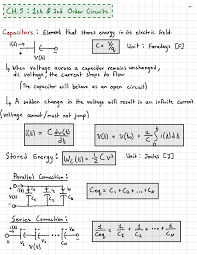 CH.5 : 1st & 2nd Order Circuits
Capacitors : Element that stores energy in its electric field.
i(t) → C = q/V Unit : Farads [F]
V(t)
↳ When voltage across a capacitor remains unchanged,
dc voltage, the current stops to flow
(The capacitor will behave as an open circuit)
↳ A sudden change in the voltage will result in an infinite current
(Voltage cannot/must not jump)
i(t) = C dv(t)/dt V(t) = V(t₀) + 1/C ∫ i(t) dt
Stored Energy : W_C(t) = 1/2 C V² Unit : Joules [J]
Parallel Connection :
Ceq = C₁ + C₂ + ... + C_N
Series Connection :
1/Ceq = 1/C₁ + 1/C₂ + ... + 1/C_N
V(t)